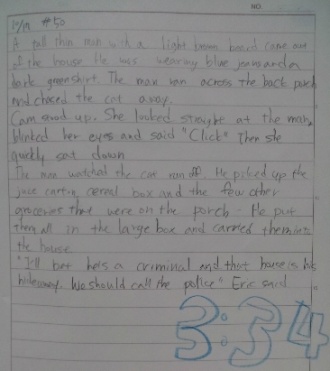 NO
#50
A tall thin man with a light brown beard came out
of the house He was wearing blue jeans and a
dark green shirt. The man ran across the back porch
and chased the cat away.
Cam stood up. She looked straight at the man,
blinked her eyes and said "Click" Then she
quickly sat down
The man watched the cat run off. He picked up the
juice carton, cereal box and the few other
groceries that were on the porch. He put
them all in the large box and carried them into
the house
"I'll bet he's a criminal and that house is his
hideaway. We should call the police" Eric said
3:34